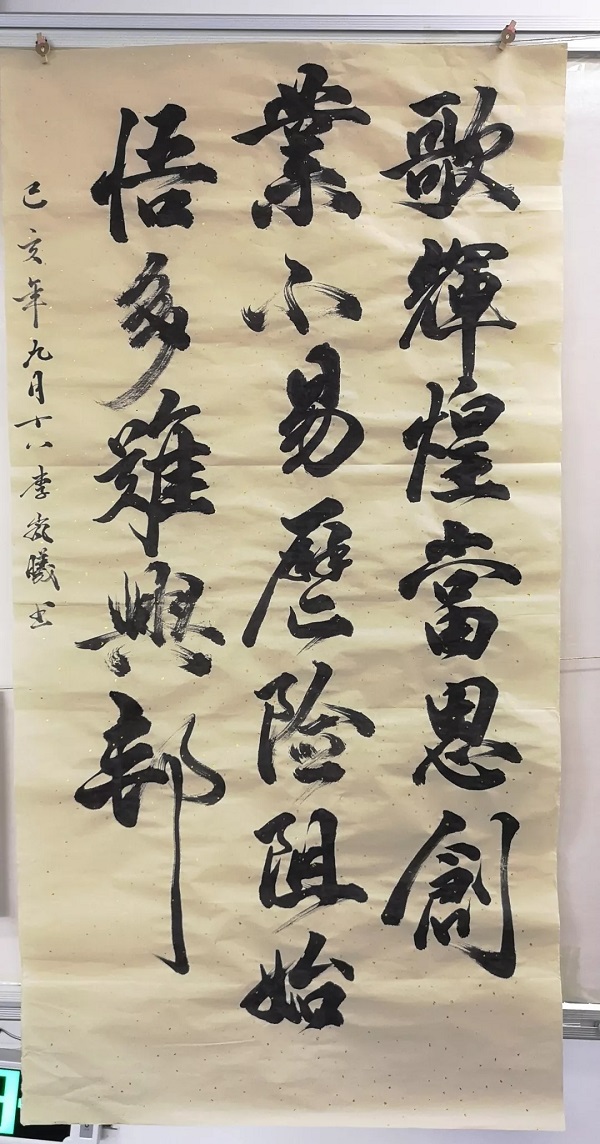 歌輝煌當思創
業不易歷险阻始
悟多難興邦
己亥年九月十八李曦书